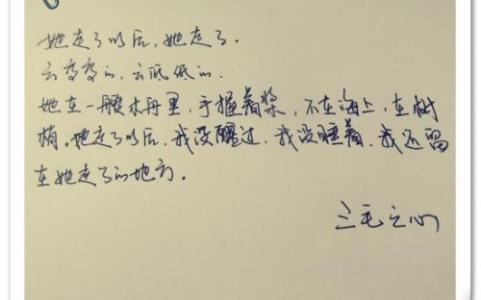 她走了以后,她走了.
云弯弯的,云低低的.
她在一艘小舟里,手握着桨,不在海上,在树
梢。她走了以后,我没醒过,我没睡着,我还留
在她走了的地方.
三毛之心